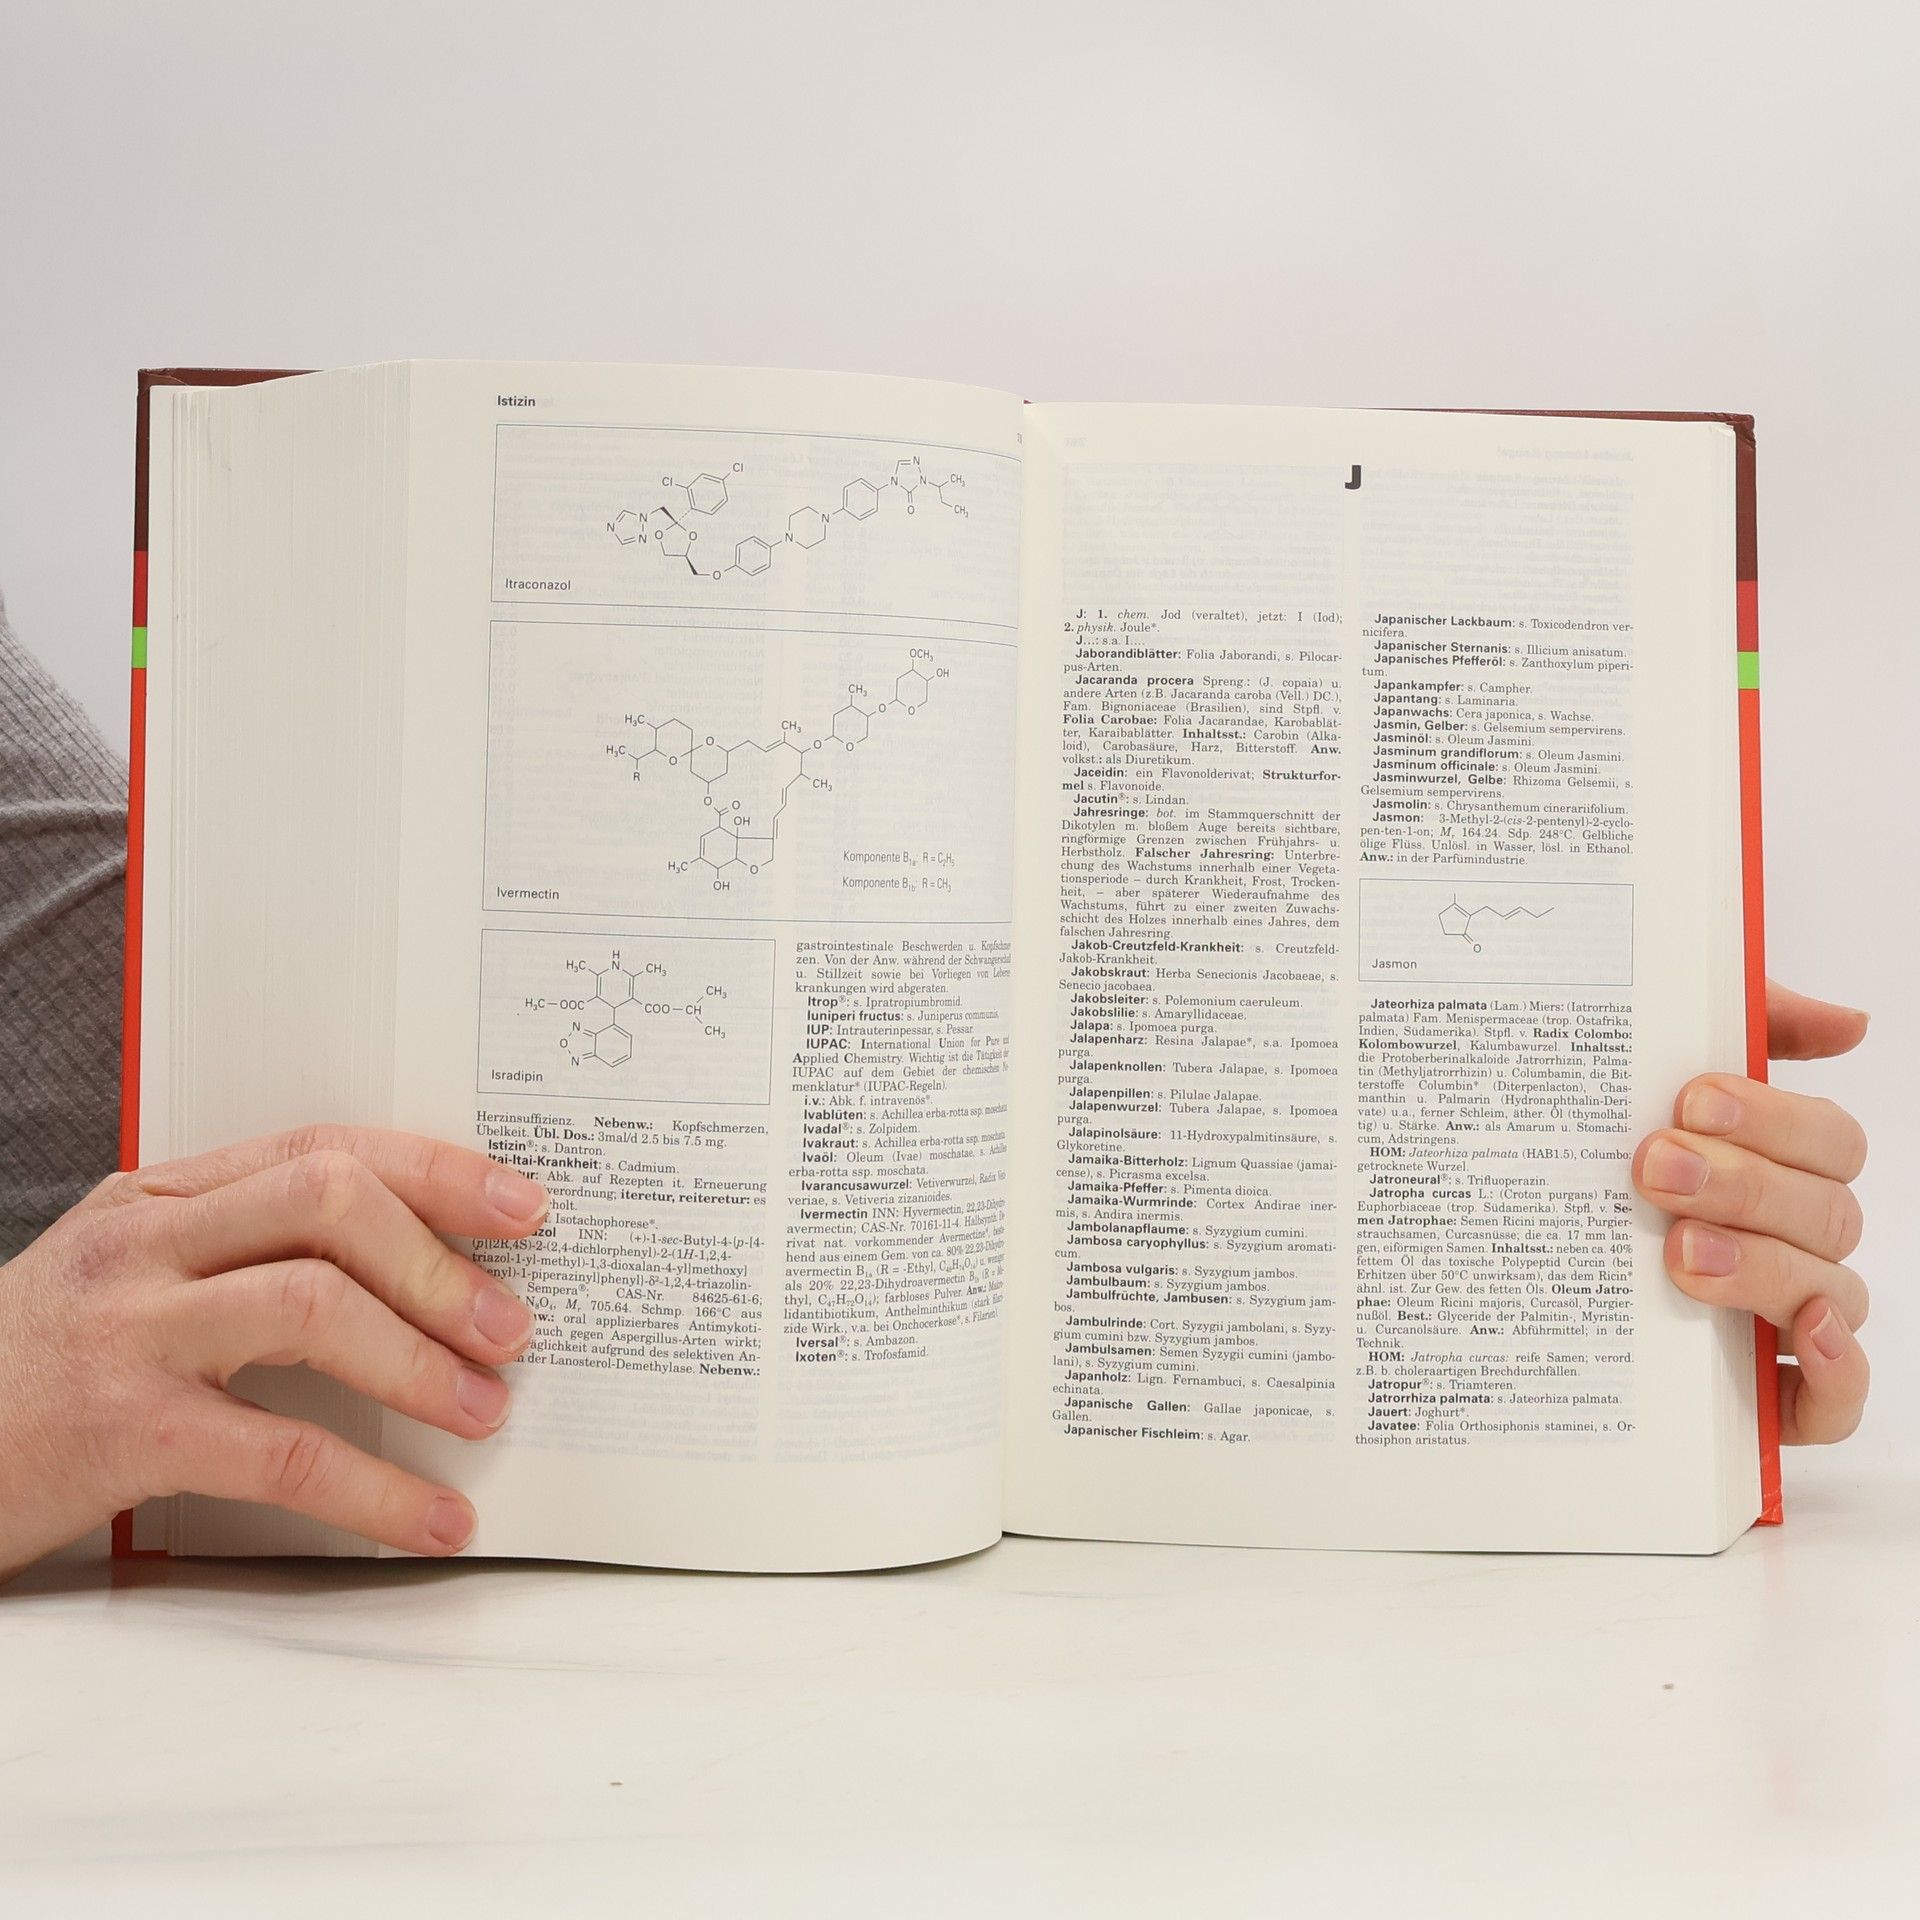 Istizin
Cl
Cl
CH₃
CH₃
Itraconazol
OCH₃
OH
CH₃
H₃C
CH₃
H₃C
R
CH₃
OH
H₃C
OH
Komponente B₁ₐ: R = C₂H₅
Komponente B₁b: R = CH₃
Ivermectin
H
H₃C N CH₃
H₃C—OOC COO—CH
CH₃
CH₃
Isradipin
Herzinsuffizienz. Nebenw.: Kopfschmerzen,
Übelkeit. Übl. Dos.: 3mal/d 2.5 bis 7.5 mg.
Istizin®: s. Dantron.
Itai-Itai-Krankheit: s. Cadmium.
Abk. auf Rezepten it. Erneuerung
iteretur, reiteretur: es
Isotachophorese*.
INN: (+)-1-sec-Butyl-4-{p-[4-
(p[[2R,4S)-2-(2,4-dichlorphenyl)-2-(1H-1,2,4-
triazol-1-yl-methyl)-1,3-dioxalan-4-yl]methoxy]
-1-piperazinyl]phenyl}-δ²-1,2,4-triazolin-
Sempera®; CAS-Nr. 84625-61-6;
Mᵣ 705.64. Schmp. 166°C aus
oral applizierbares Antimykoti-
auch gegen Aspergillus-Arten wirkt;
aufgrund des selektiven An-
der Lanosterol-Demethylase. Nebenw.:
gastrointestinale Beschwerden u. Kopfschmer
zen. Von der Anw. während der Schwangerschaf
u. Stillzeit sowie bei Vorliegen von Leber-
krankungen wird abgeraten.
Itrop®: s. Ipratropiumbromid.
Iuniperi fructus: s. Juniperus communis.
IUP: Intrauterinpessar, s. Pessar.
IUPAC: International Union for Pure and
Applied Chemistry. Wichtig ist die Tätigkeit der
IUPAC auf dem Gebiet der chemischen No-
menklatur* (IUPAC-Regeln).
i.v.: Abk. f. intravenös*.
Ivablüten: s. Achillea erba-rotta ssp. moschata.
Ivadal®: s. Zolpidem.
Ivakraut: s. Achillea erba-rotta ssp. moschata.
Ivaöl: Oleum (Ivae) moschatae, s. Achillea
erba-rotta ssp. moschata.
Ivarancusawurzel: Vetiverwurzel, Radix Veti-
veriae, s. Vetiveria zizanioides.
Ivermectin INN: Hyvermectin, 22,23-Dihydro-
avermectin; CAS-Nr. 70161-11-4. Halbsynth. De-
rivat nat. vorkommender Avermectine*, beste-
hend aus einem Gem. von ca. 80% 22,23-Dihydro-
avermectin B₁ₐ (R = -Ethyl, C₄₈H₇₄O₁₄) u. weniger
als 20% 22,23-Dihydroavermectin B₁b (R = Me-
thyl, C₄₇H₇₂O₁₄); farbloses Pulver. Anw.: Makro-
lidantibiotikum, Anthelminthikum (stark filari-
zide Wirk., v.a. bei Onchocerkose*, s. Filarien).
Iversal®: s. Ambazon.
Ixoten®: s. Trofosfamid.
J
J: 1. chem. Jod (veraltet), jetzt: I (Iod);
2. physik. Joule*.
J...: s.a. I....
Jaborandiblätter: Folia Jaborandi, s. Pilocar-
pus-Arten.
Jacaranda procera Spreng.: (J. copaia) u.
andere Arten (z.B. Jacaranda caroba (Vell.) DC.),
Fam. Bignoniaceae (Brasilien), sind Stpfl. v.
Folia Carobae: Folia Jacarandae, Karobablät-
ter, Karaibablätter. Inhaltsst.: Carobin (Alka-
loid), Carobasäure, Harz, Bitterstoff. Anw.
volkst.: als Diuretikum.
Jaceidin: ein Flavonolderivat; Strukturfor-
mel s. Flavonoide.
Jacutin®: s. Lindan.
Jahresringe: bot. im Stammquerschnitt der
Dikotylen m. bloßem Auge bereits sichtbare,
ringförmige Grenzen zwischen Frühjahrs- u.
Herbstholz. Falscher Jahresring: Unterbre-
chung des Wachstums innerhalb einer Vegeta-
tionsperiode – durch Krankheit, Frost, Trocken-
heit, – aber späterer Wiederaufnahme des
Wachstums, führt zu einer zweiten Zuwachs-
schicht des Holzes innerhalb eines Jahres, dem
falschen Jahresring.
Jakob-Creutzfeld-Krankheit: s. Creutzfeld-
Jakob-Krankheit.
Jakobskraut: Herba Senecionis Jacobaeae, s.
Senecio jacobaea.
Jakobsleiter: s. Polemonium caeruleum.
Jakobslilie: s. Amaryllidaceae.
Jalapa: s. Ipomoea purga.
Jalapenharz: Resina Jalapae*, s.a. Ipomoea
purga.
Jalapenknollen: Tubera Jalapae, s. Ipomoea
purga.
Jalapenpillen: s. Pilulae Jalapae.
Jalapenwurzel: Tubera Jalapae, s. Ipomoea
purga.
Jalapinolsäure: 11-Hydroxypalmitinsäure, s.
Glykoretine.
Jamaika-Bitterholz: Lignum Quassiae (jamai-
cense), s. Picrasma excelsa.
Jamaika-Pfeffer: s. Pimenta dioica.
Jamaika-Wurmrinde: Cortex Andirae iner-
mis, s. Andira inermis.
Jambolanapflaume: s. Syzygium cumini.
Jambosa caryophyllus: s. Syzygium aromati-
cum.
Jambosa vulgaris: s. Syzygium jambos.
Jambulbaum: s. Syzygium jambos.
Jambulfrüchte, Jambusen: s. Syzygium jam-
bos.
Jambulrinde: Cort. Syzygii jambolani, s. Syzy-
gium cumini bzw. Syzygium jambos.
Jambulsamen: Semen Syzygii cumini (jambo-
lani), s. Syzygium cumini.
Japanholz: Lign. Fernambuci, s. Caesalpinia
echinata.
Japanische Gallen: Gallae japonicae, s.
Gallen.
Japanischer Fischleim: s. Agar.
Japanischer Lackbaum: s. Toxicodendron ver-
nicifera.
Japanischer Sternanis: s. Illicium anisatum.
Japanisches Pfefferöl: s. Zanthoxylum piperi-
tum.
Japankampfer: s. Campher.
Japantang: s. Laminaria.
Japanwachs: Cera japonica, s. Wachse.
Jasmin, Gelber: s. Gelsemium sempervirens.
Jasminöl: s. Oleum Jasmini.
Jasminum grandiflorum: s. Oleum Jasmini.
Jasminum officinale: s. Oleum Jasmini.
Jasminwurzel, Gelbe: Rhizoma Gelsemii, s.
Gelsemium sempervirens.
Jasmolin: s. Chrysanthemum cinerariifolium.
Jasmon: 3-Methyl-2-(cis-2-pentenyl)-2-cyclo-
pen-ten-1-on; Mᵣ 164.24. Sdp. 248°C. Gelbliche
ölige Flüss. Unlösl. in Wasser, lösl. in Ethanol.
Anw.: in der Parfümindustrie.
O
Jasmon
Jateorhiza palmata (Lam.) Miers: (Iatrorrhiza
palmata) Fam. Menispermaceae (trop. Ostafrika,
Indien, Südamerika). Stpfl. v. Radix Colombo:
Kolombowurzel, Kalumbawurzel. Inhaltsst.:
die Protoberberinalkaloide Jatrorrhizin, Palma-
tin (Methyljatrorrhizin) u. Columbamin, die Bit-
terstoffe Columbin* (Diterpenlacton), Chas-
manthin u. Palmarin (Hydronaphthalin-Deri-
vate) u.a., ferner Schleim, äther. Öl (thymolhal-
tig) u. Stärke. Anw.: als Amarum u. Stomachi-
cum, Adstringens.
HOM: Jateorhiza palmata (HAB1.5), Columbo:
getrocknete Wurzel.
Jatroneural®: s. Trifluoperazin.
Jatropha curcas L.: (Croton purgans) Fam.
Euphorbiaceae (trop. Südamerika). Stpfl. v. Se-
men Jatrophae: Semen Ricini majoris, Purgier-
strauchsamen, Curcasnüsse; die ca. 17 mm lan-
gen, eiförmigen Samen. Inhaltsst.: neben ca. 40%
fettem Öl das toxische Polypeptid Curcin (bei
Erhitzen über 50°C unwirksam), das dem Ricin*
ähnl. ist. Zur Gew. des fetten Öls. Oleum Jatro-
phae: Oleum Ricini majoris, Curcasöl, Purgier-
nußöl. Best.: Glyceride der Palmitin-, Myristin-
u. Curcanolsäure. Anw.: Abführmittel; in der
Technik.
HOM: Jatropha curcas: reife Samen; verord.
z.B. b. choleraartigen Brechdurchfällen.
Jatropur®: s. Triamteren.
Jatrorrhiza palmata: s. Jateorhiza palmata.
Jauert: Joghurt*.
Javatee: Folia Orthosiphonis staminei, s. Or-
thosiphon aristatus.